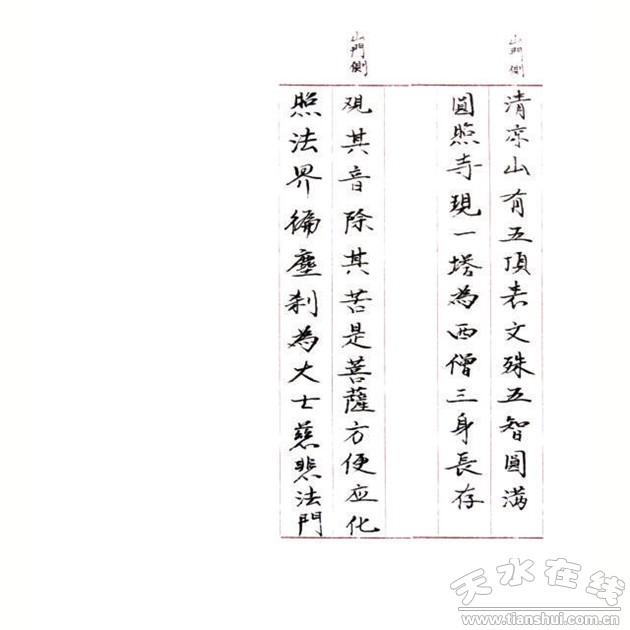 山門側
清涼山有五頂表文殊五智圓滿
圓照寺現一塔為西僧三身長存
山門側
觀其音除其苦是菩薩方便应化
照法界徧塵刹為大士慈悲法門
天水在线
www.tianshui.com.cn